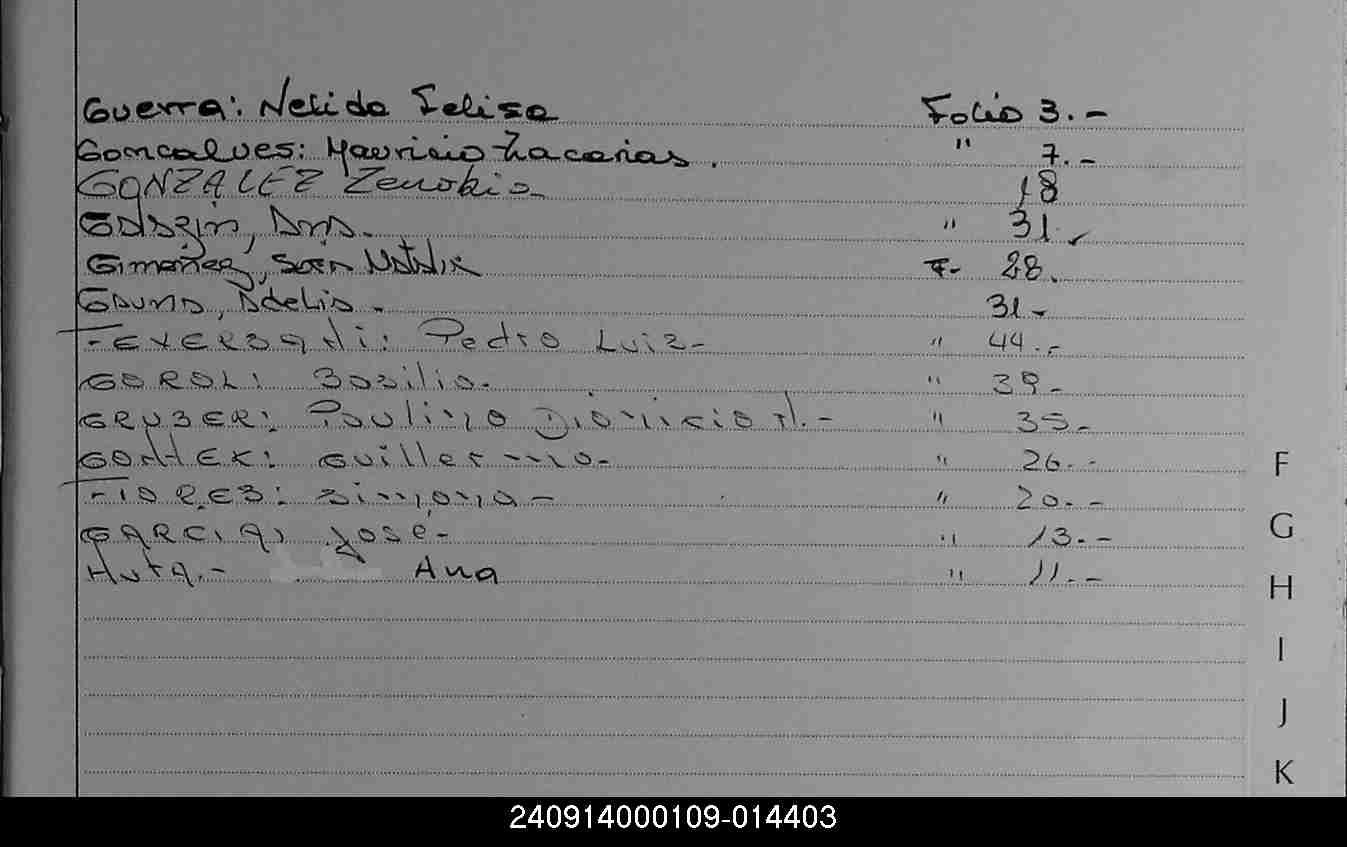 Guerra: Nelida Felisa Folio 3.-
Goncalves: Mauricio Zacarias. " 7.-
GONZALEZ Zenobia 18
Ana. " 31
Gimenez, Natalia F- 28.
Gauna, Adelia. 31-
Pedro Luiz- " 44.-
GOROL: Basilio. " 39-
GRUBER: Paulino Dionicio A.- " 35-
Guillermo- " 26.-
FLORES: Simona- " 20.-
GARCIA, José,- " 13.-
Huta.- Ana " 11.-
F
G
H
I
J
K
240914000109-014403